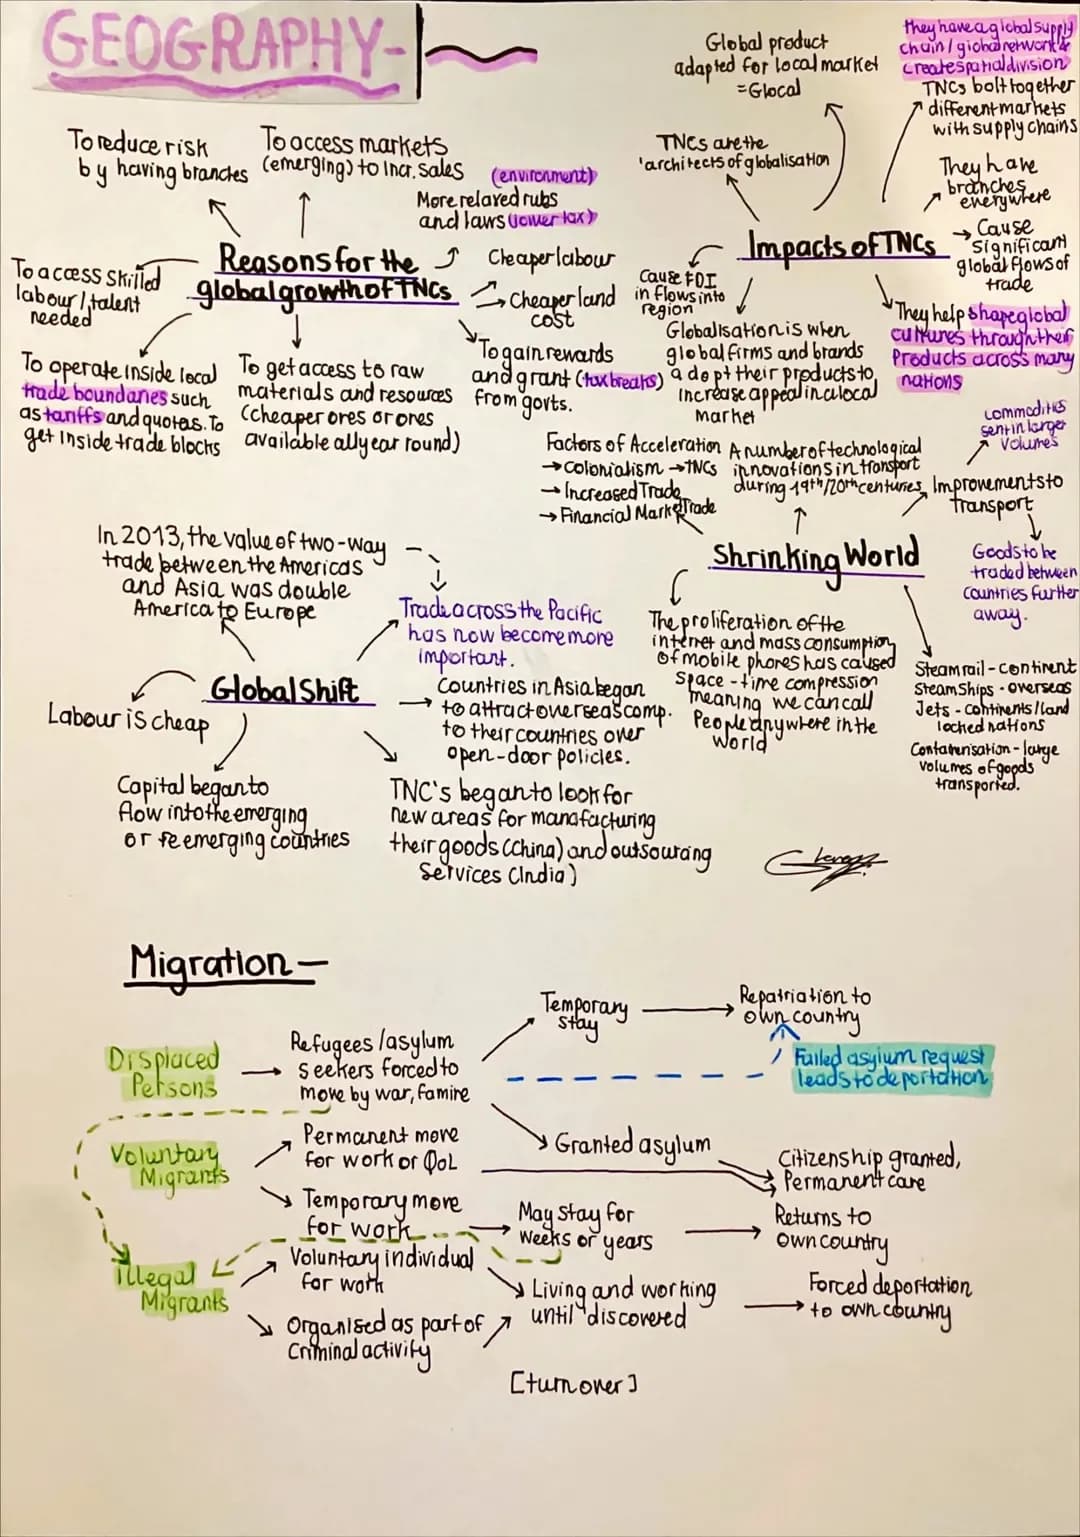 GEOGRAPHY-
To reduce risk
by having branches
To access markets
(emerging) to Incr. sales
(environment)
More relaxed rules
and laws (lower tax)
Reasons for the
global growth of TNCs
Cheaper labour
Cheaper land
cost
To access skilled
labour / talent
needed
To operate inside local
trade boundaries such
as tariffs and quotas. To
get inside trade blocks
To get access to raw
materials and resources
(cheaper ores or ores
available all year round)
To gain rewards
and grant (tax breaks)
from govts.
Global product
adapted for local market
= Glocal
They have a global supply
chain / global network &
create spatial division
TNCs bolt together
different markets
with supply chains
TNCs are the
'architects of globalisation
They have
branches
everywhere
Impacts of TNCs
Cause
significant
global flows of
trade
Cause FDI
in flows into
region
Globalisation is when
global firms and brands
adopt their products to
increase appeal in a local
market
They help shape global
cultures through their
Products across many
nations
Factors of Acceleration
→ Colonialism → TNCs
→ Increased Trade
→ Financial Market Trade
A number of technological
innovations in transport
during 19th/20th centuries
commodities
sent in larger
volumes
Improvements to
transport
Shrinking World
Goods to be
traded between
countries further
away.
The proliferation of the
internet and mass consumption
of mobile phones has caused
space-time compression
meaning we can call
People anywhere in the
world
Steam rail - continent
Steam Ships - overseas
Jets - continents / land
locked nations
Containerisation - large
volumes of goods
transported.
In 2013, the value of two-way
trade between the Americas
and Asia was double
America to Europe
Trade across the Pacific
has now become more
important.
Global Shift
Labour is cheap
Countries in Asia began
to attract overseas comp.
to their countries over
open-door policies.
Capital began to
flow into the emerging
or re emerging countries
TNC's began to look for
new areas for manafacturing
their goods (China) and outsourcing
Services (India)
Migration -
Displaced
Persons
Refugees / asylum
seekers forced to
move by war, famine
Temporary
stay
Repatriation to
own country
Failed asylum request
leads to deportation
Granted asylum
Voluntary
Migrants
Permanent move
for work or QoL
Citizenship granted,
Permanent care
Temporary move
for work
May stay for
weeks or years
Returns to
own country
Illegal
Migrants
Voluntary individual
for work
Organised as part of
Criminal activity
Living and working
until discovered
Forced deportation
to own country
[turn over]